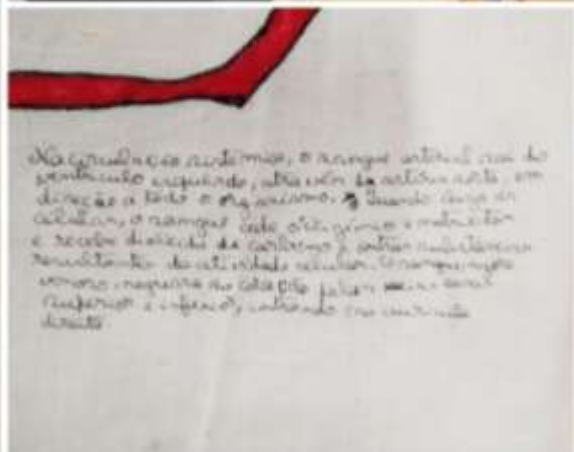 Na circulação sistêmica, o sangue arterial sai do
ventrículo esquerdo, através da artéria aorta, em
direção a todo o organismo. Quando chega às
células, o sangue cede oxigênio e nutrientes
e recebe dióxido de carbono e outras substâncias
resultantes da atividade celular. O sangue, agora
venoso, regressa ao coração pelas veias cavas
superior e inferior, entrando na aurícula
direita.